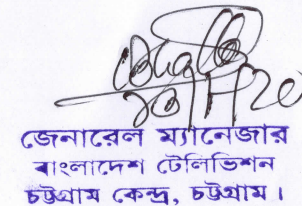 জেনারেল ম্যানেজার
বাংলাদেশ টেলিভিশন
চট্টগ্রাম কেন্দ্র, চট্টগ্রাম।